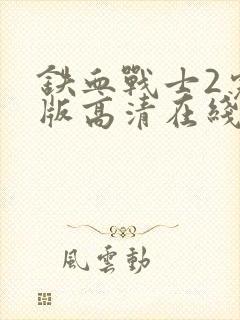 鉄血戰士2
版高清在綫
風雲動